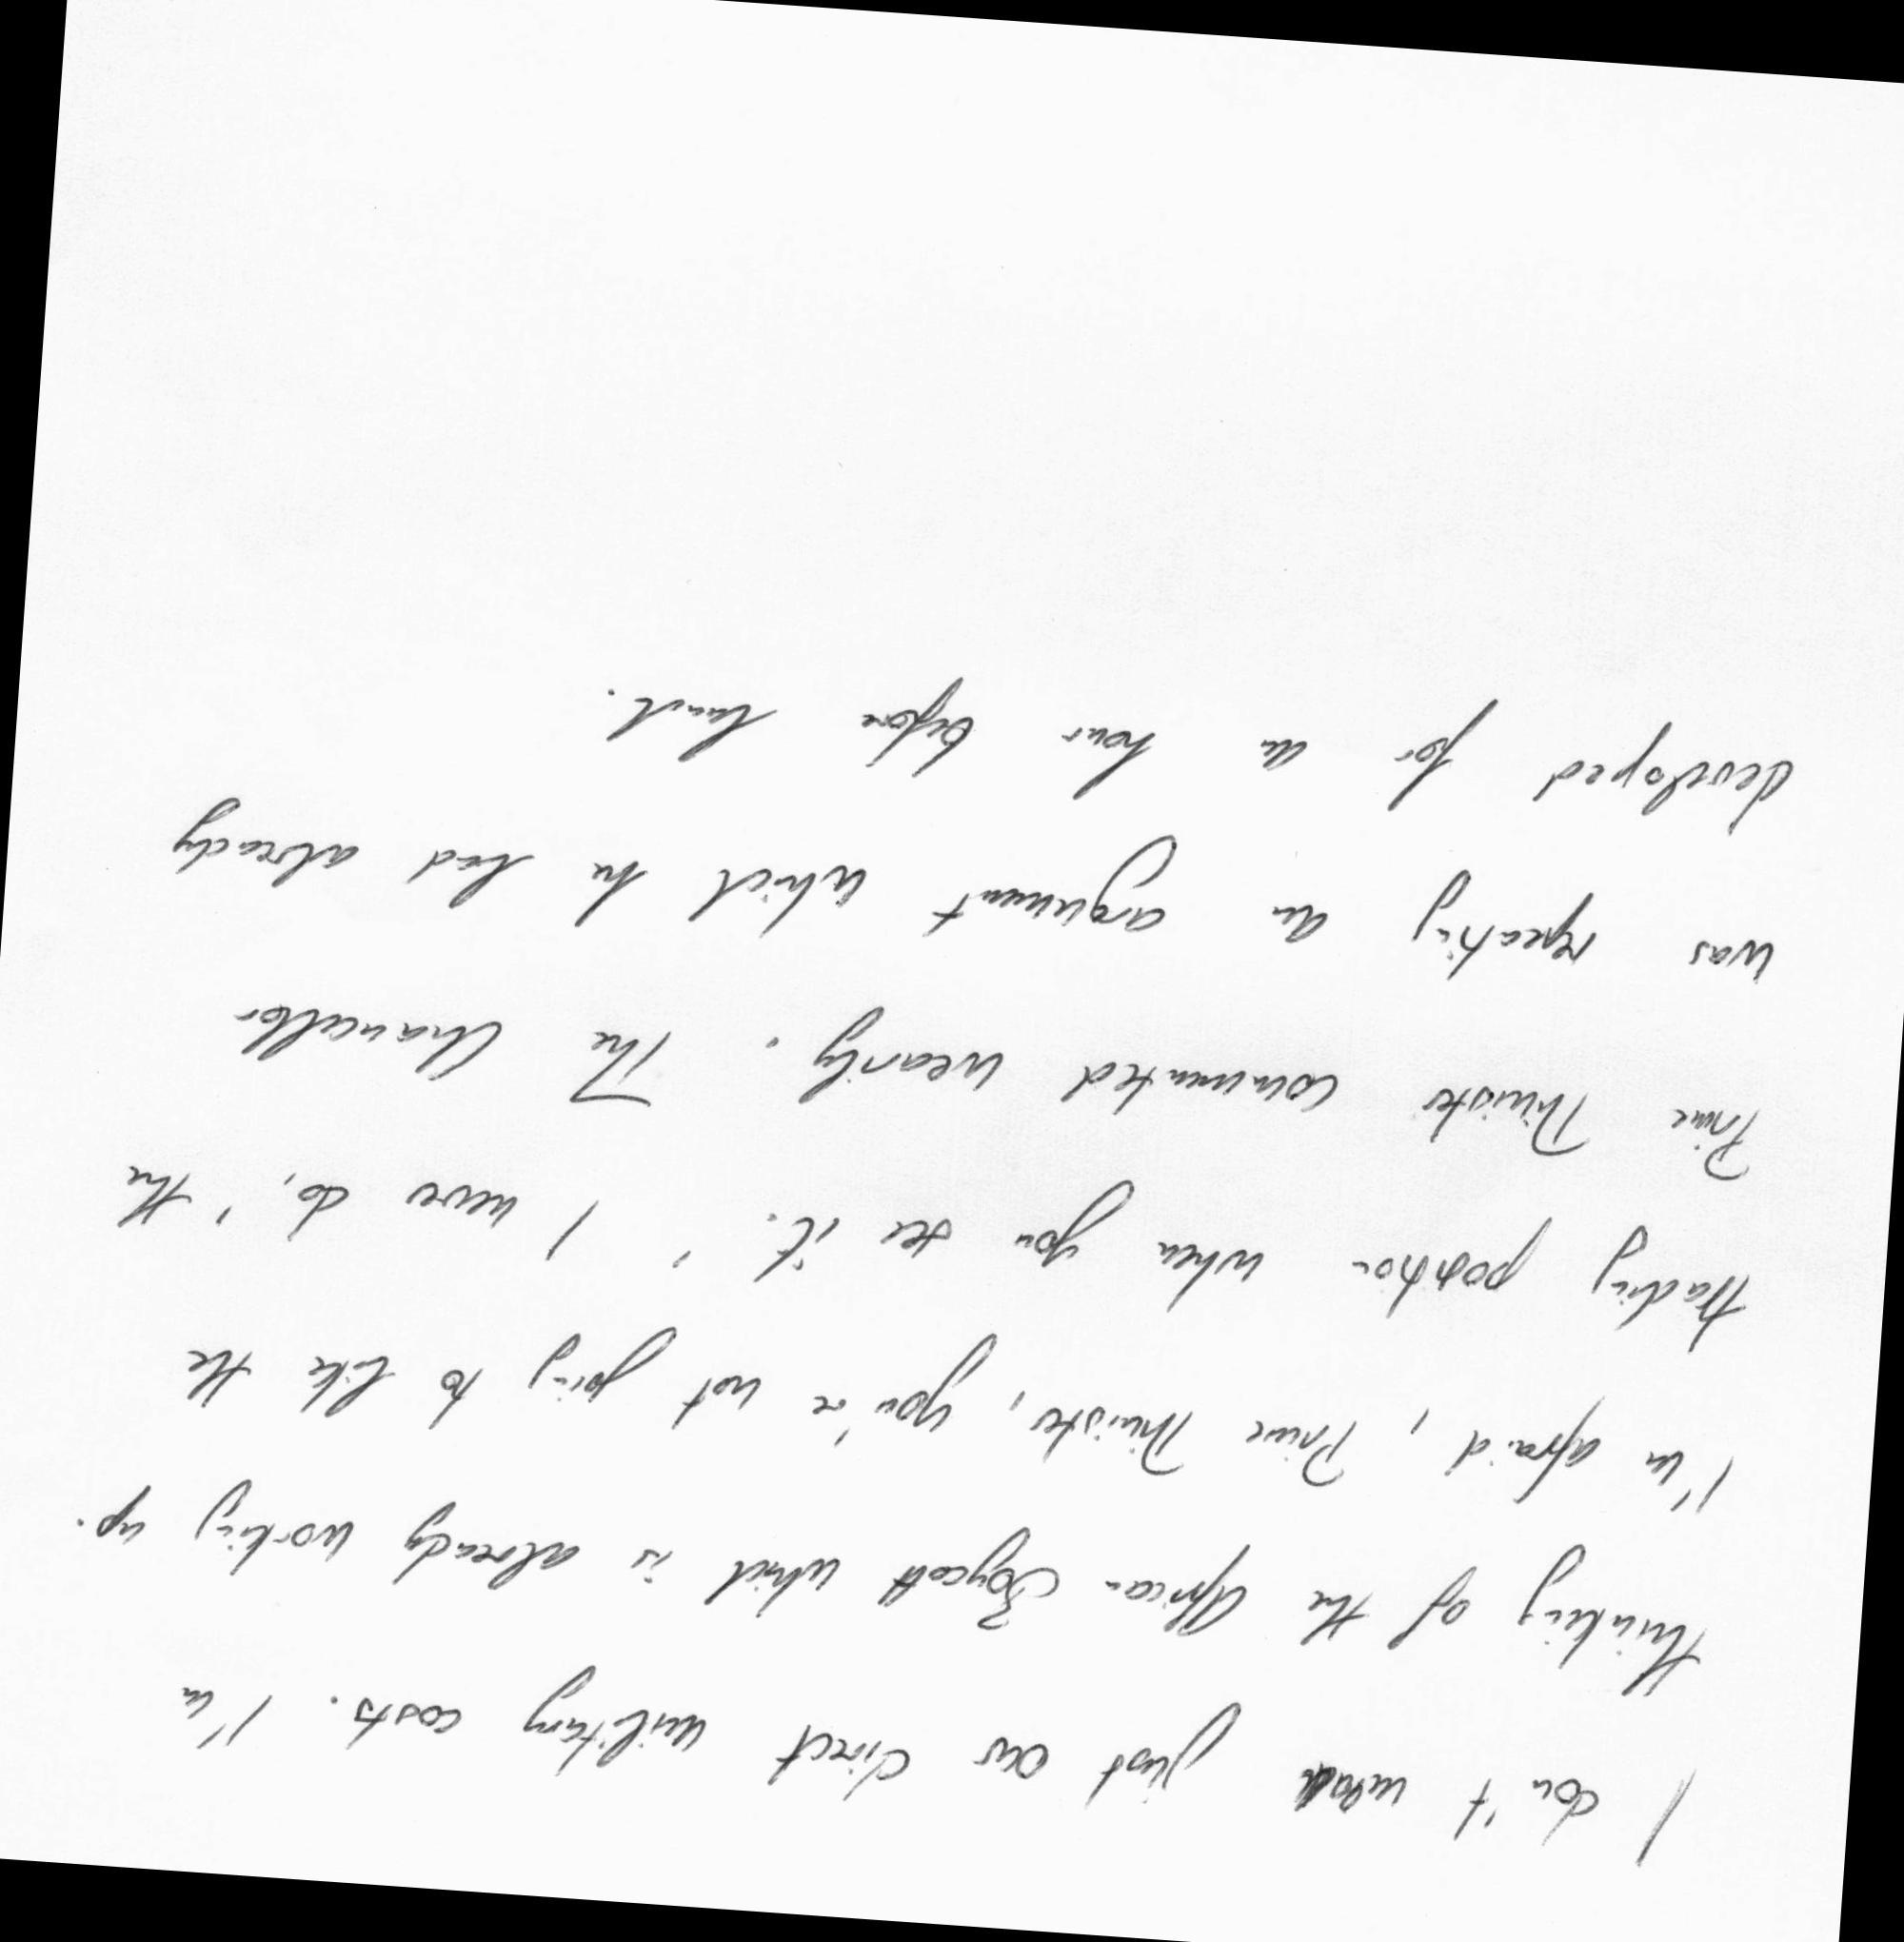 I don't mean just our direct military costs. I'm
thinking of the African Boycott which is already working up.
I'm afraid, Prime Minister, you're not going to like the
trading position when you see it.' 'I never do,' the
Prime Minister commented wearily. The Chancellor
was repeating an argument which he had already
developed for an hour before lunch.